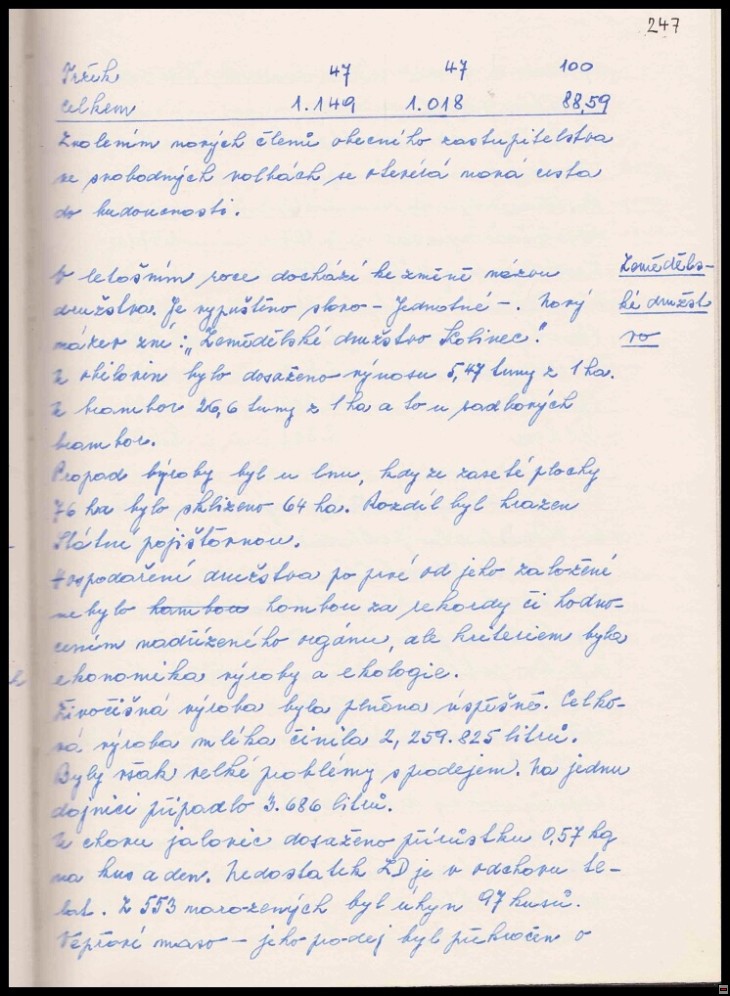 247
Tržek 47 47 100
Celkem 1.149 1.018 88,59
Zvolením nových členů obecného zastupitelstva
ve svobodných volbách se otevírá nová cesta
do budoucnosti.
V letošním roce dochází ke změně názvu
družstva. Je vypuštěno slovo - Jednotné -. Nový
název zní: "Zemědělské družstvo Kolinec."
Zeměděls-
ké družst
vo
U obilovin bylo dosaženo výnosu 5,47 tuny z 1 ha.
U brambor 26,6 tuny z 1 ha a to u sadbových
brambor.
Propad výroby byl u lnu, kdy ze zaseté plochy
76 ha bylo sklizeno 64 ha. Rozdíl byl hrazen
Státní pojišťovnou.
Hospodaření družstva po prvé od jeho založení
nebylo hambou honbou za rekordy či hodno-
cením nadřízeného orgánu, ale kriteriem byla
ekonomika výroby a ekologie.
Živočišná výroba byla plněna úspěšně. Celko-
vá výroba mléka činila 2,259.825 litrů.
Byly však velké problémy s prodejem. Na jednu
dojnici připadlo 3.686 litrů.
U chovu jalovic dosaženo přírůstku 0,57 kg
na kus a den. Nedostatek ZD je v odchovu te-
lat. Z 553 narozených byl úhyn 97 kusů.
Vepřové maso - jeho prodej byl překročen o